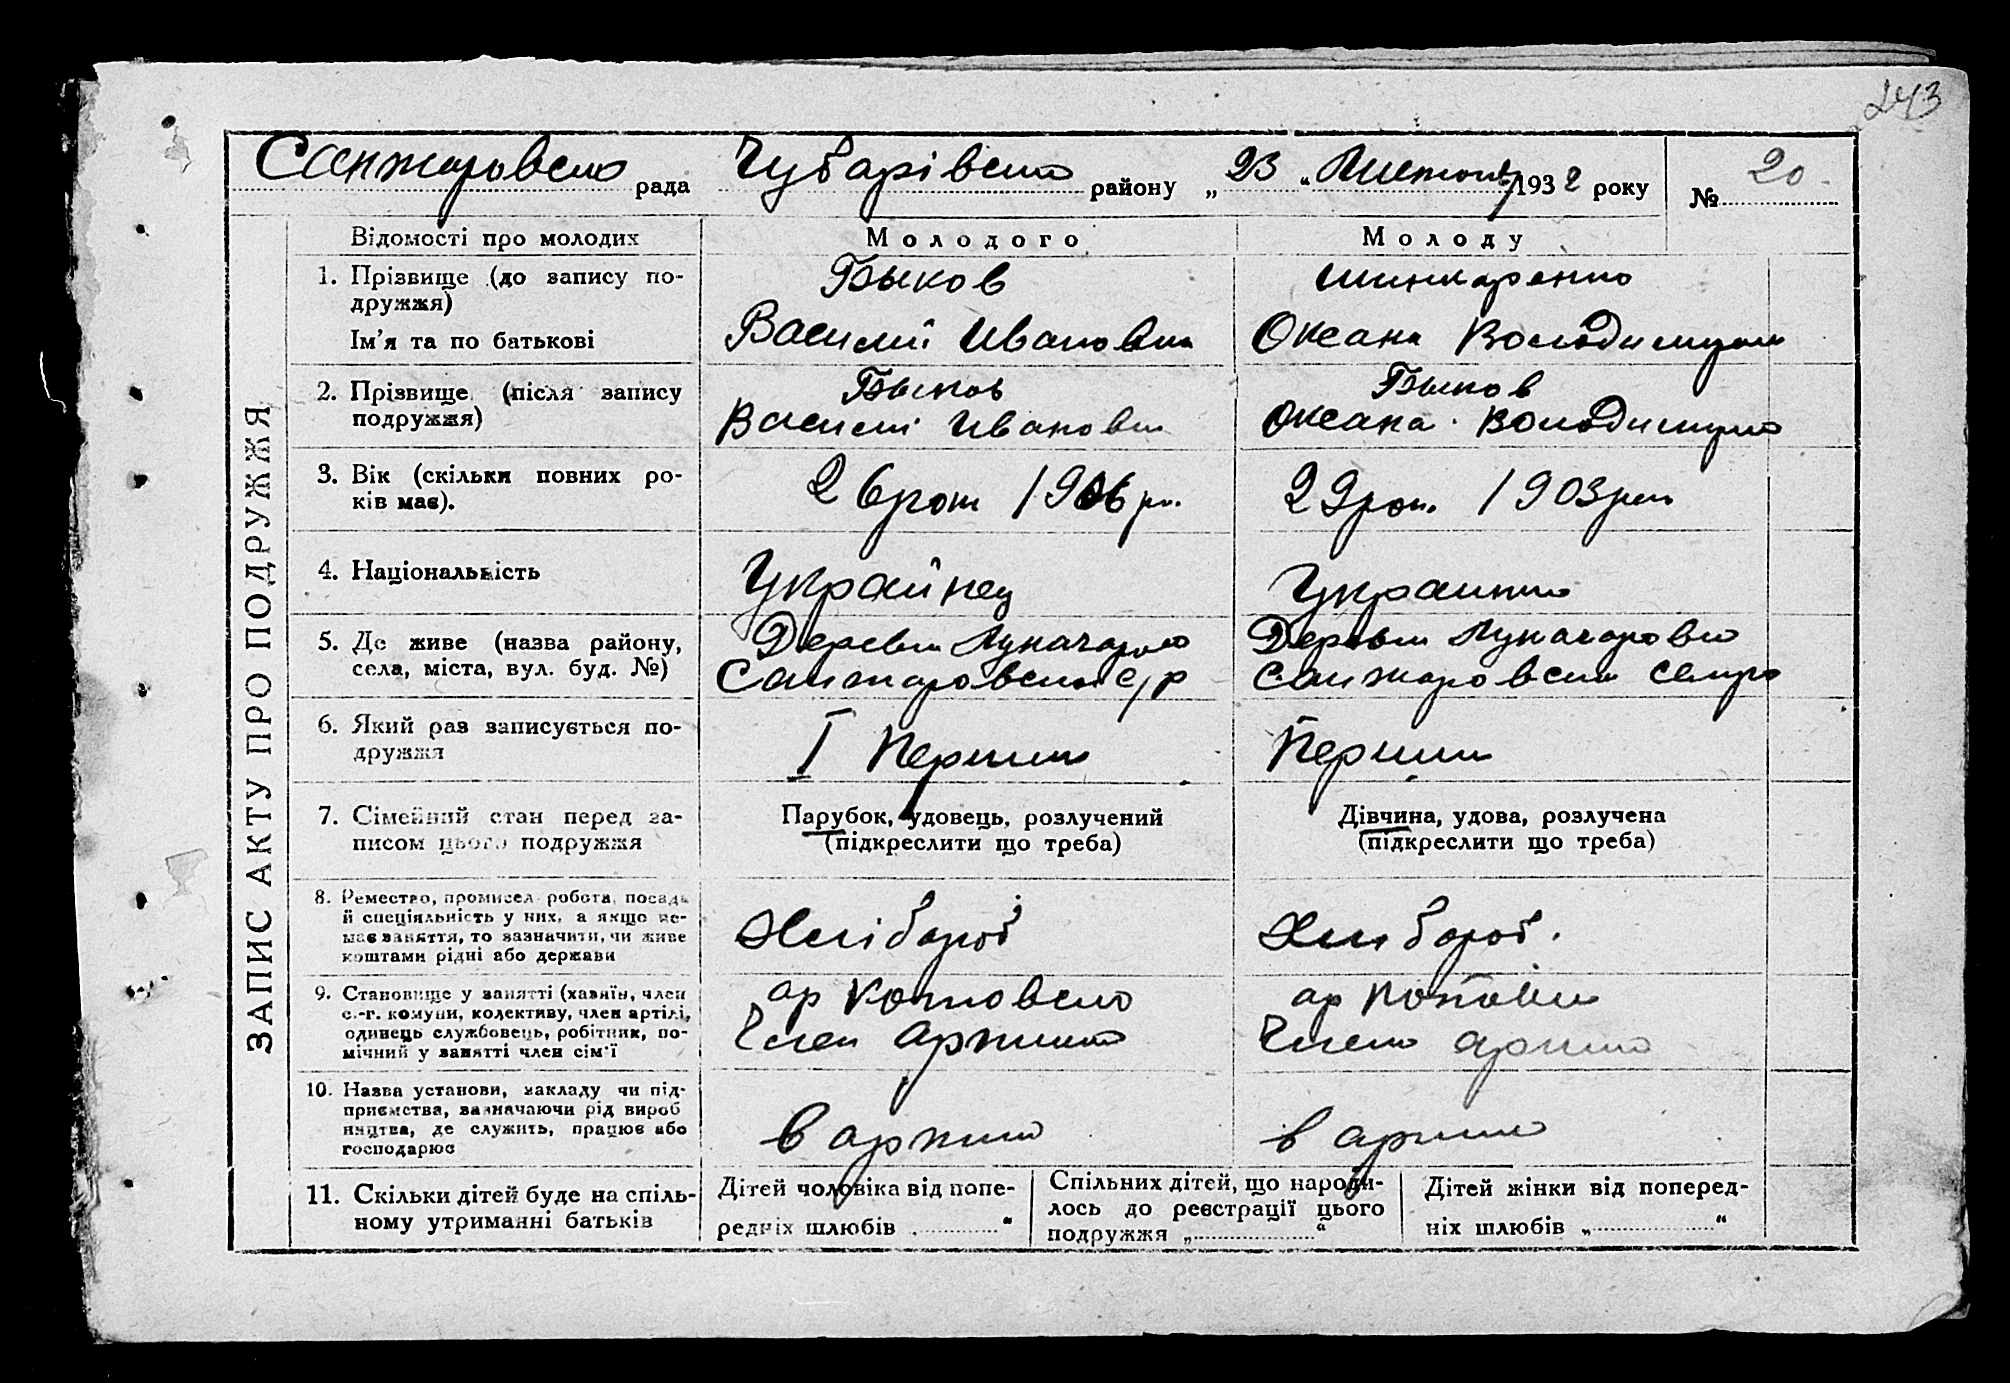 243
Санжаровска рада Чубарівска району „23“ Листопад 1932 року № 20
ЗАПИС АКТУ ПРО ПОДРУЖЖЯ
Відомості про молодих Молодого Молоду
1. Прізвище (до запису по-
дружжя)
Быков Шинкаренко
Ім'я та по батькові
Василий Иванович Оксана
2. Прізвище (після запису
подружжя)
Быков Быков
Иванович Оксана
3. Вік (скільки повних ро-
ків має).
26 рок 1906 р. 29 рок. 1903 рок
4. Національність
Украйнец Украинка
5. Де живе (назва району,
села, міста, вул. буд. №)
Санжаровска с/р Санжаровска
6. Який раз записується по-
дружжя
I Перший Перший
7. Сімейний стан перед за-
писом цього подружжя
Парубок, удовець, розлучений
(підкреслити що треба)
Дівчина, удова, розлучена
(підкреслити що треба)
8. Ремество, промисел робота, посада
й спеціяльність у них, а якщо не-
має заняття, то зазначити, чи живе
коштами рідні або держави
Хлібороб Хлибороб.
9. Становище у занятті (хазяїн, член
с.-г. комуни, колективу, член артілі,
одинець службовець, робітник, по-
мічний у занятті член сім'ї
ар ар
Член Член
10. Назва установи, закладу чи під-
приємства, зазначаючи рід вироб
ництва, де служить, працює або
господарює
в в
11. Скільки дітей буде на спіль-
ному утриманні батьків
Дітей чоловіка від попе-
редніх шлюбів „ “
Спільних дітей, що народи-
лось до реєстрації цього
подружжя „ “
Дітей жінки від поперед-
ніх шлюбів „ “